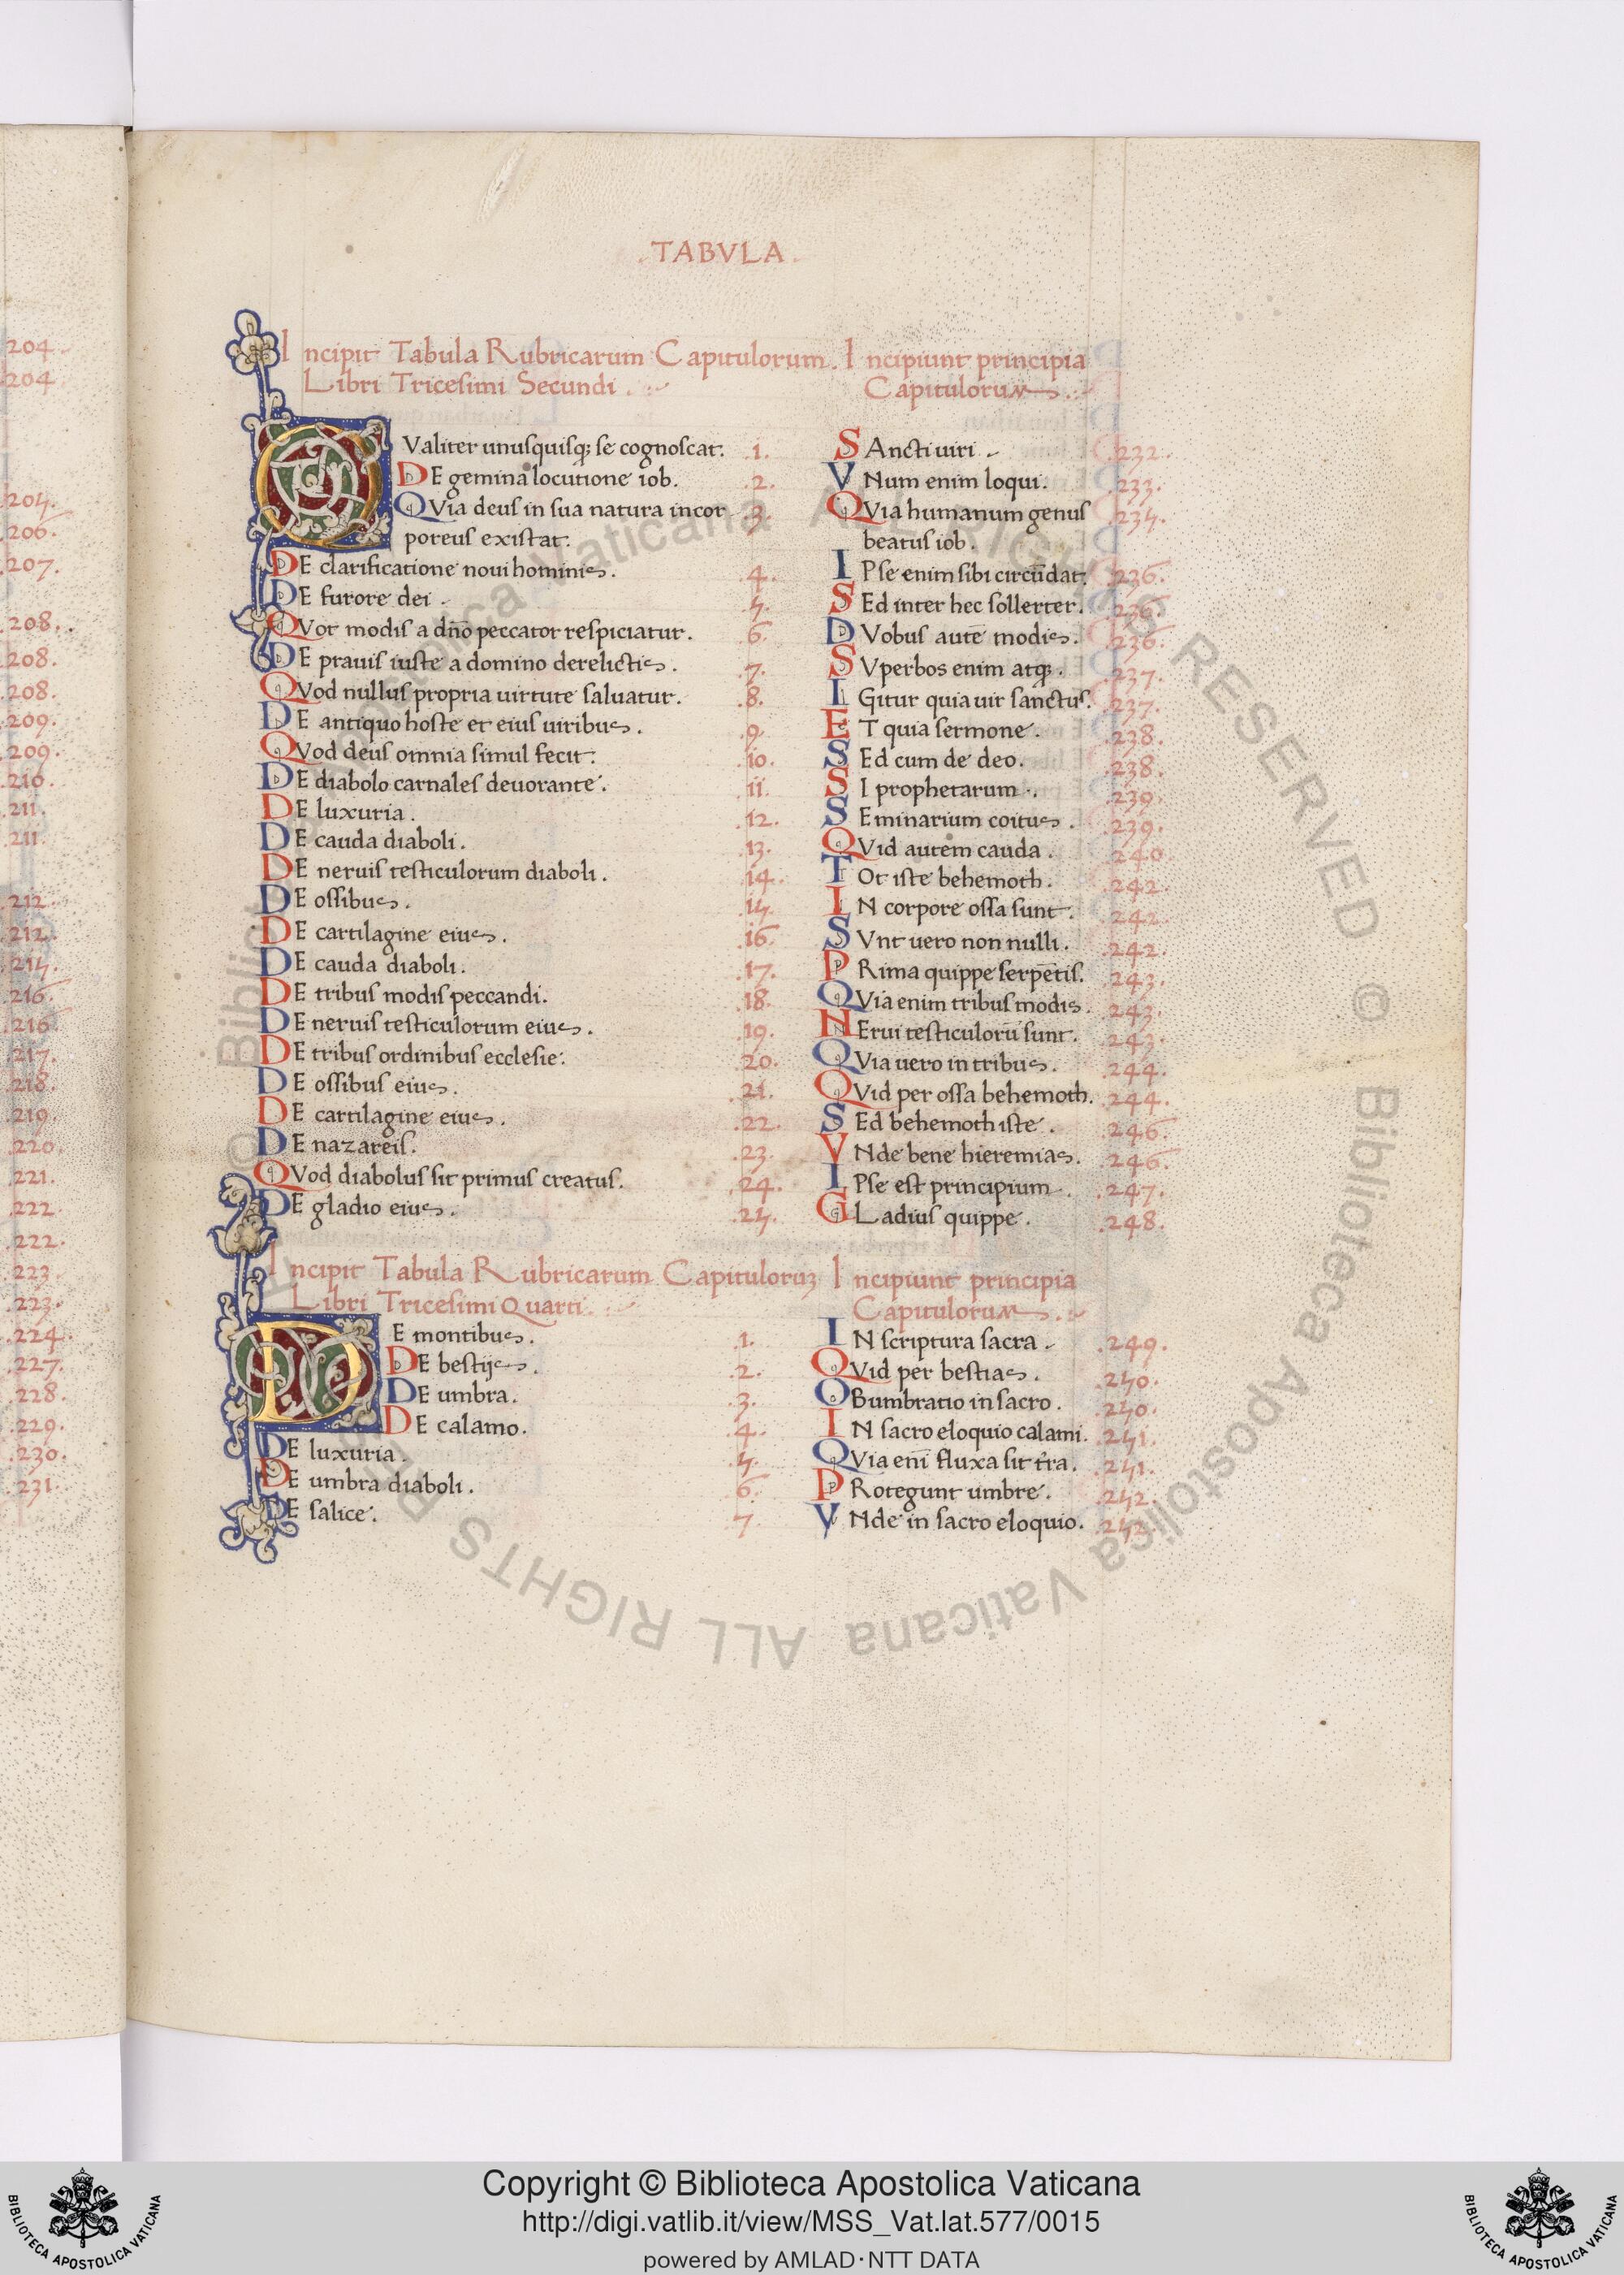 204.
204
205.
206.
207.
208.
208.
208.
209.
209.
210.
211.
211.
212.
212.
215.
216.
216
217.
218.
219.
220.
221.
222.
222.
223.
223.
224.
227.
228.
229.
230.
231.
.TABVLA.
Incipit Tabula Rubricarum Capitulorum. Incipiunt principia
Libri Tricesimi Secundi. Capitulorum.
QValiter unusquisq; se cognoscat. .1. SAncti uiri. .232.
DE gemina locutione iob. .2. VNum enim loqui. .233.
QVia deus in sua natura incor .3. QVia humanum genus .235.
poreus existat. beatus iob.
DE clarificatione noui hominis. .4. IPse enim sibi circūdat. .236.
DE furore dei. .5. SEd inter hec sollerter. .236.
QVot modis a dño peccator respiciatur. .6. DVobus autē modis. .236.
DE prauis iuste a domino derelictis. .7. SVperbos enim atq;. .237.
QVod nullus propria uirtute saluatur. .8. IGitur quia uir sanctus. .237.
DE antiquo hoste et eius uiribus. .9. ET quia sermone. .238.
QVod deus omnia simul fecit. .10. SEd cum de deo. .238.
DE diabolo carnales deuorante. .11. SI prophetarum. .239.
DE luxuria. .12. SEminarium coitus. .239.
DE cauda diaboli. .13. QVid autem cauda. .240
DE neruis testiculorum diaboli. .14. TOt iste behemoth. .242.
DE ossibus. .15. IN corpore ossa sunt. .242.
DE cartilagine eius. .16. SVnt uero non nulli. .242.
DE cauda diaboli. .17. PRima quippe serpētis. .243.
DE tribus modis peccandi. .18. QVia enim tribus modis. .243.
DE neruis testiculorum eius. .19. NErui testiculorū sunt. .243.
DE tribus ordinibus ecclesie. .20. QVia uero in tribus. .244.
DE ossibus eius. .21. QVid per ossa behemoth. .244.
DE cartilagine eius. .22. SEd behemoth iste. .246.
DE nazareis. .23. VNde bene hieremias. .246.
QVod diabolus sit primus creatus. .24. IPse est principium. .247.
DE gladio eius. .25. GLadius quippe. .248.
Incipit Tabula Rubricarum Capitulorum Incipiunt principia
Libri Tricesimi Quarti. Capitulorum.
DE montibus. .1. IN scriptura sacra. .249.
DE bestijs. .2. QVid per bestias. .250.
DE umbra. .3. OBumbratio in sacro. .250.
DE calamo. .4. IN sacro eloquio calami. .251.
DE luxuria. .5. QVia enī fluxa sit tr̃a. .251.
DE umbra diaboli. .6. PRotegunt umbre. .252.
DE salice. .7. VNde in sacro eloquio. .252.
© Biblioteca Apostolica Vaticana ALL RIGHTS RESERVED © Biblioteca Apostolica Vaticana ALL RIGHTS RESERVED
Copyright © Biblioteca Apostolica Vaticana
http://digi.vatlib.it/view/MSS_Vat.lat.577/0015
powered by AMLAD·NTT DATA
BIBLIOTECA APOSTOLICA VATICANA
BIBLIOTECA APOSTOLICA VATICANA